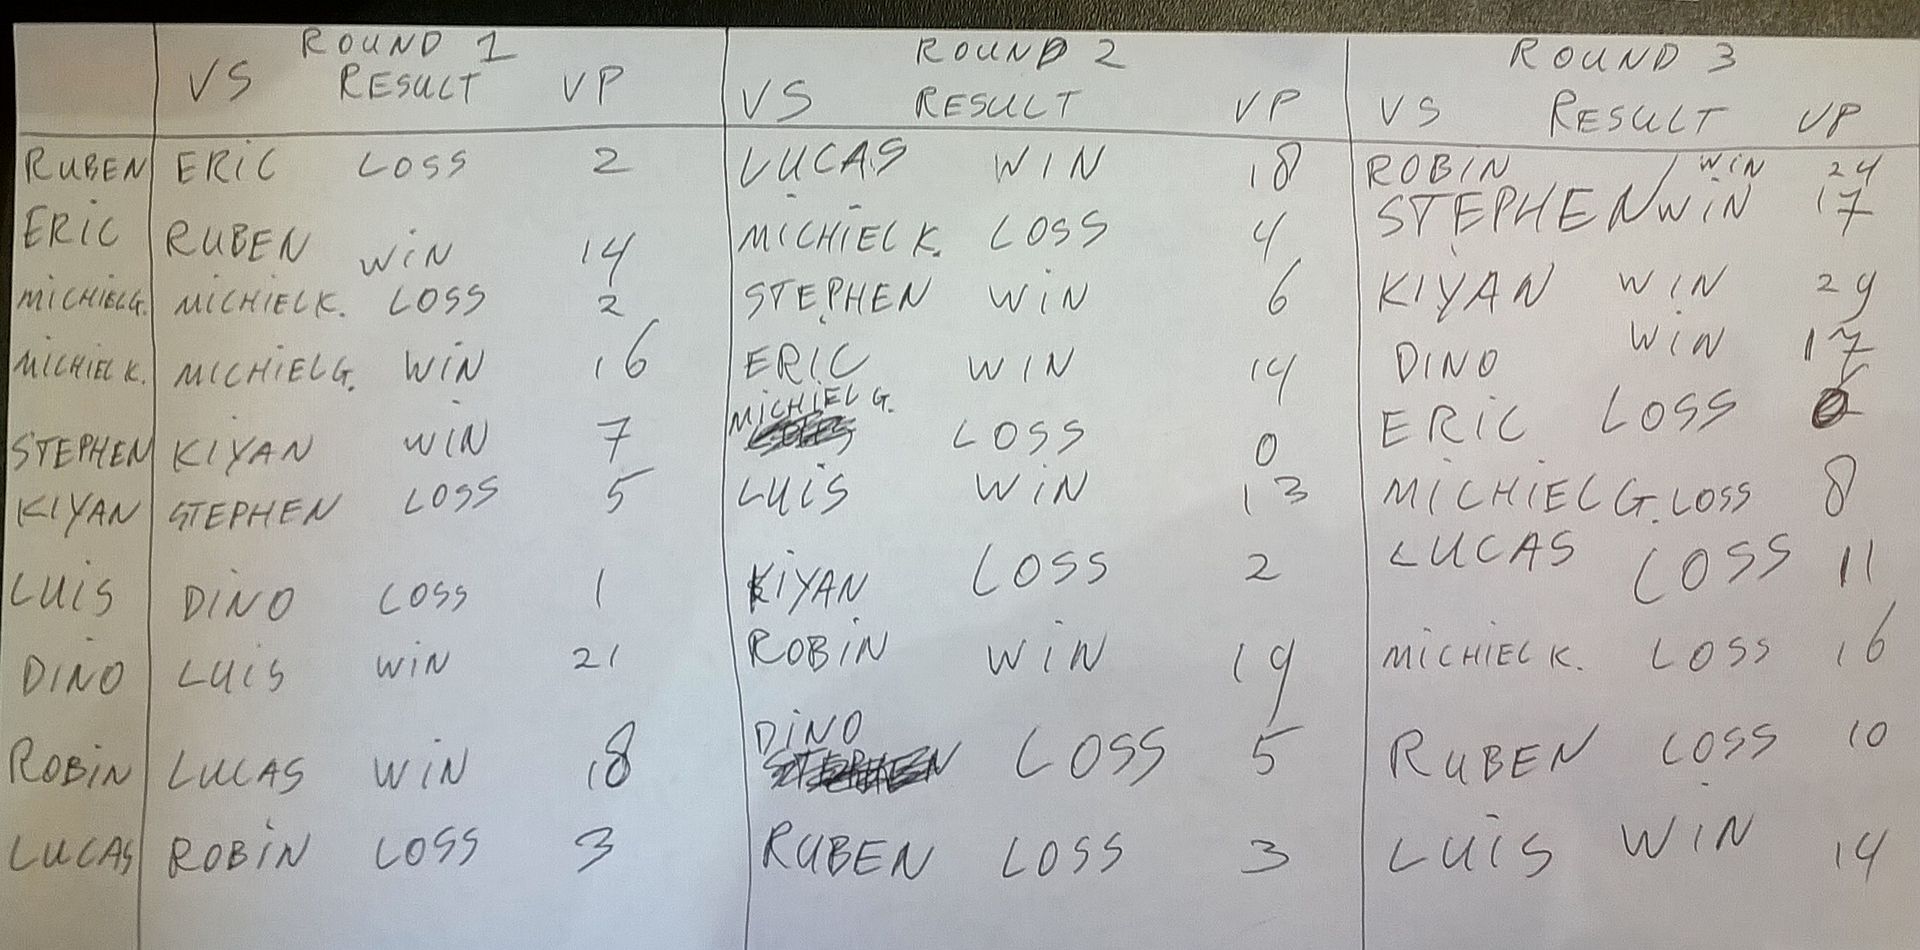 ROUND 1 ROUND 2 ROUND 3
VS RESULT VP VS RESULT VP VS RESULT VP
RUBEN ERIC LOSS 2 LUCAS WIN 18 ROBIN WIN 24
ERIC RUBEN WIN 14 MICHIEL K. LOSS 4 STEPHEN WIN 17
MICHIEL G. MICHIEL K. LOSS 2 STEPHEN WIN 6 KIYAN WIN 29
MICHIEL K. MICHIEL G. WIN 16 ERIC WIN 14 DINO WIN 17
STEPHEN KIYAN WIN 7 MICHIEL G. LOSS 0 ERIC LOSS
KIYAN STEPHEN LOSS 5 LUIS WIN 13 MICHIEL G. LOSS 8
LUIS DINO LOSS 1 KIYAN LOSS 2 LUCAS LOSS 11
DINO LUIS WIN 21 ROBIN WIN 19 MICHIEL K. LOSS 16
ROBIN LUCAS WIN 18 DINO LOSS 5 RUBEN LOSS 10
LUCAS ROBIN LOSS 3 RUBEN LOSS 3 LUIS WIN 14